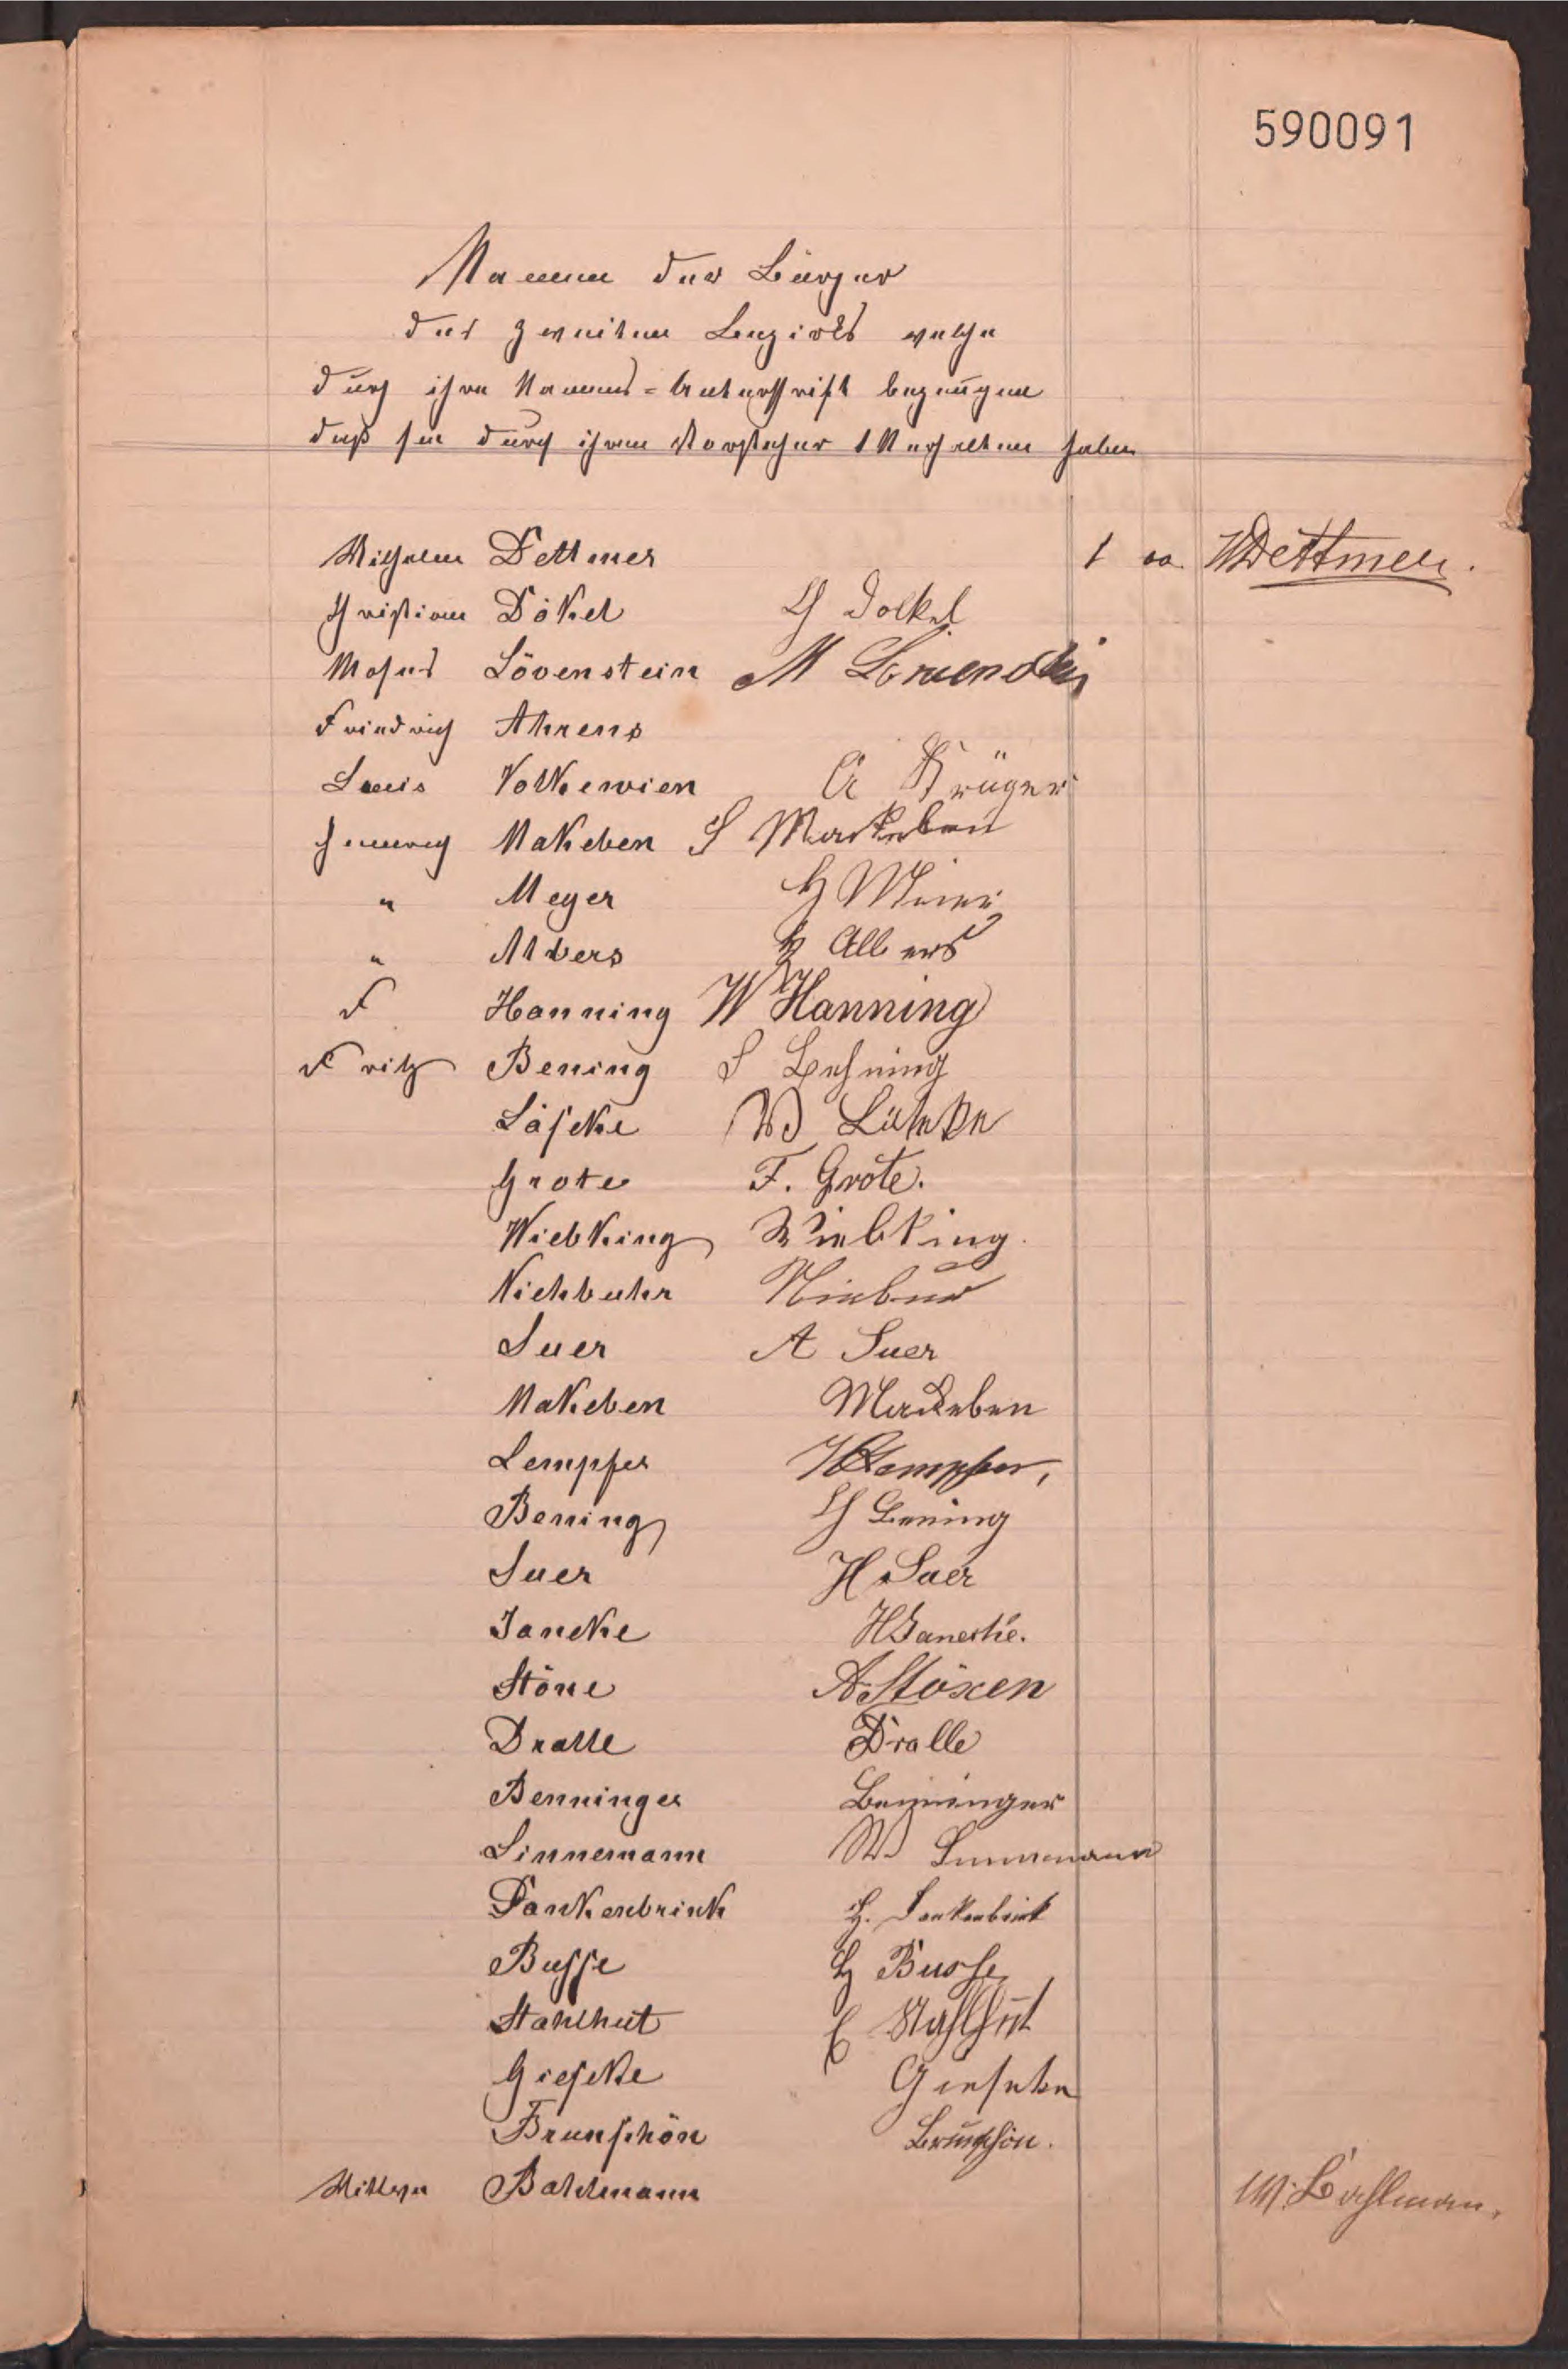 590091
Namen der Bürger
des zweiten Bezirks welche
durch ihre Namens=Unterschrift bezeugen
daß sie durch ihren Vorsteher 1 M erhalten haben
Wilhelm Dettmer 1 00 WDettmer.
Christian Dökel Ch Dökel
Moses Lövenstein M
Friedrich Ahrens
Louis Volkewien A Krüger
Heinrich Makeben S Mackeben
" Meyer H Meier
" Albers H Albers
F Hanning W Hanning
Fritz Bening F Behning
Läseke W
Grote F. Grote.
Wiebking Wiebking.
Niehbuhr Niebur
Suer A Suer
Makeben Mackeben
Lempfer HLempfer,
Bening Ch Bening
Suer H Suer
Janeke HJanecke.
Stöxe A Stöxen
Dralle Dralle
Benninger Benninger
Linnemann W Linnemann
Dankenbrink H. Dankenbrink
Busse H Busse
Stahlhut C Stahlhut
Gieseke Gieseke
Brunschön Brunschön.
Wittwe Bahlmann W. Bahlman.